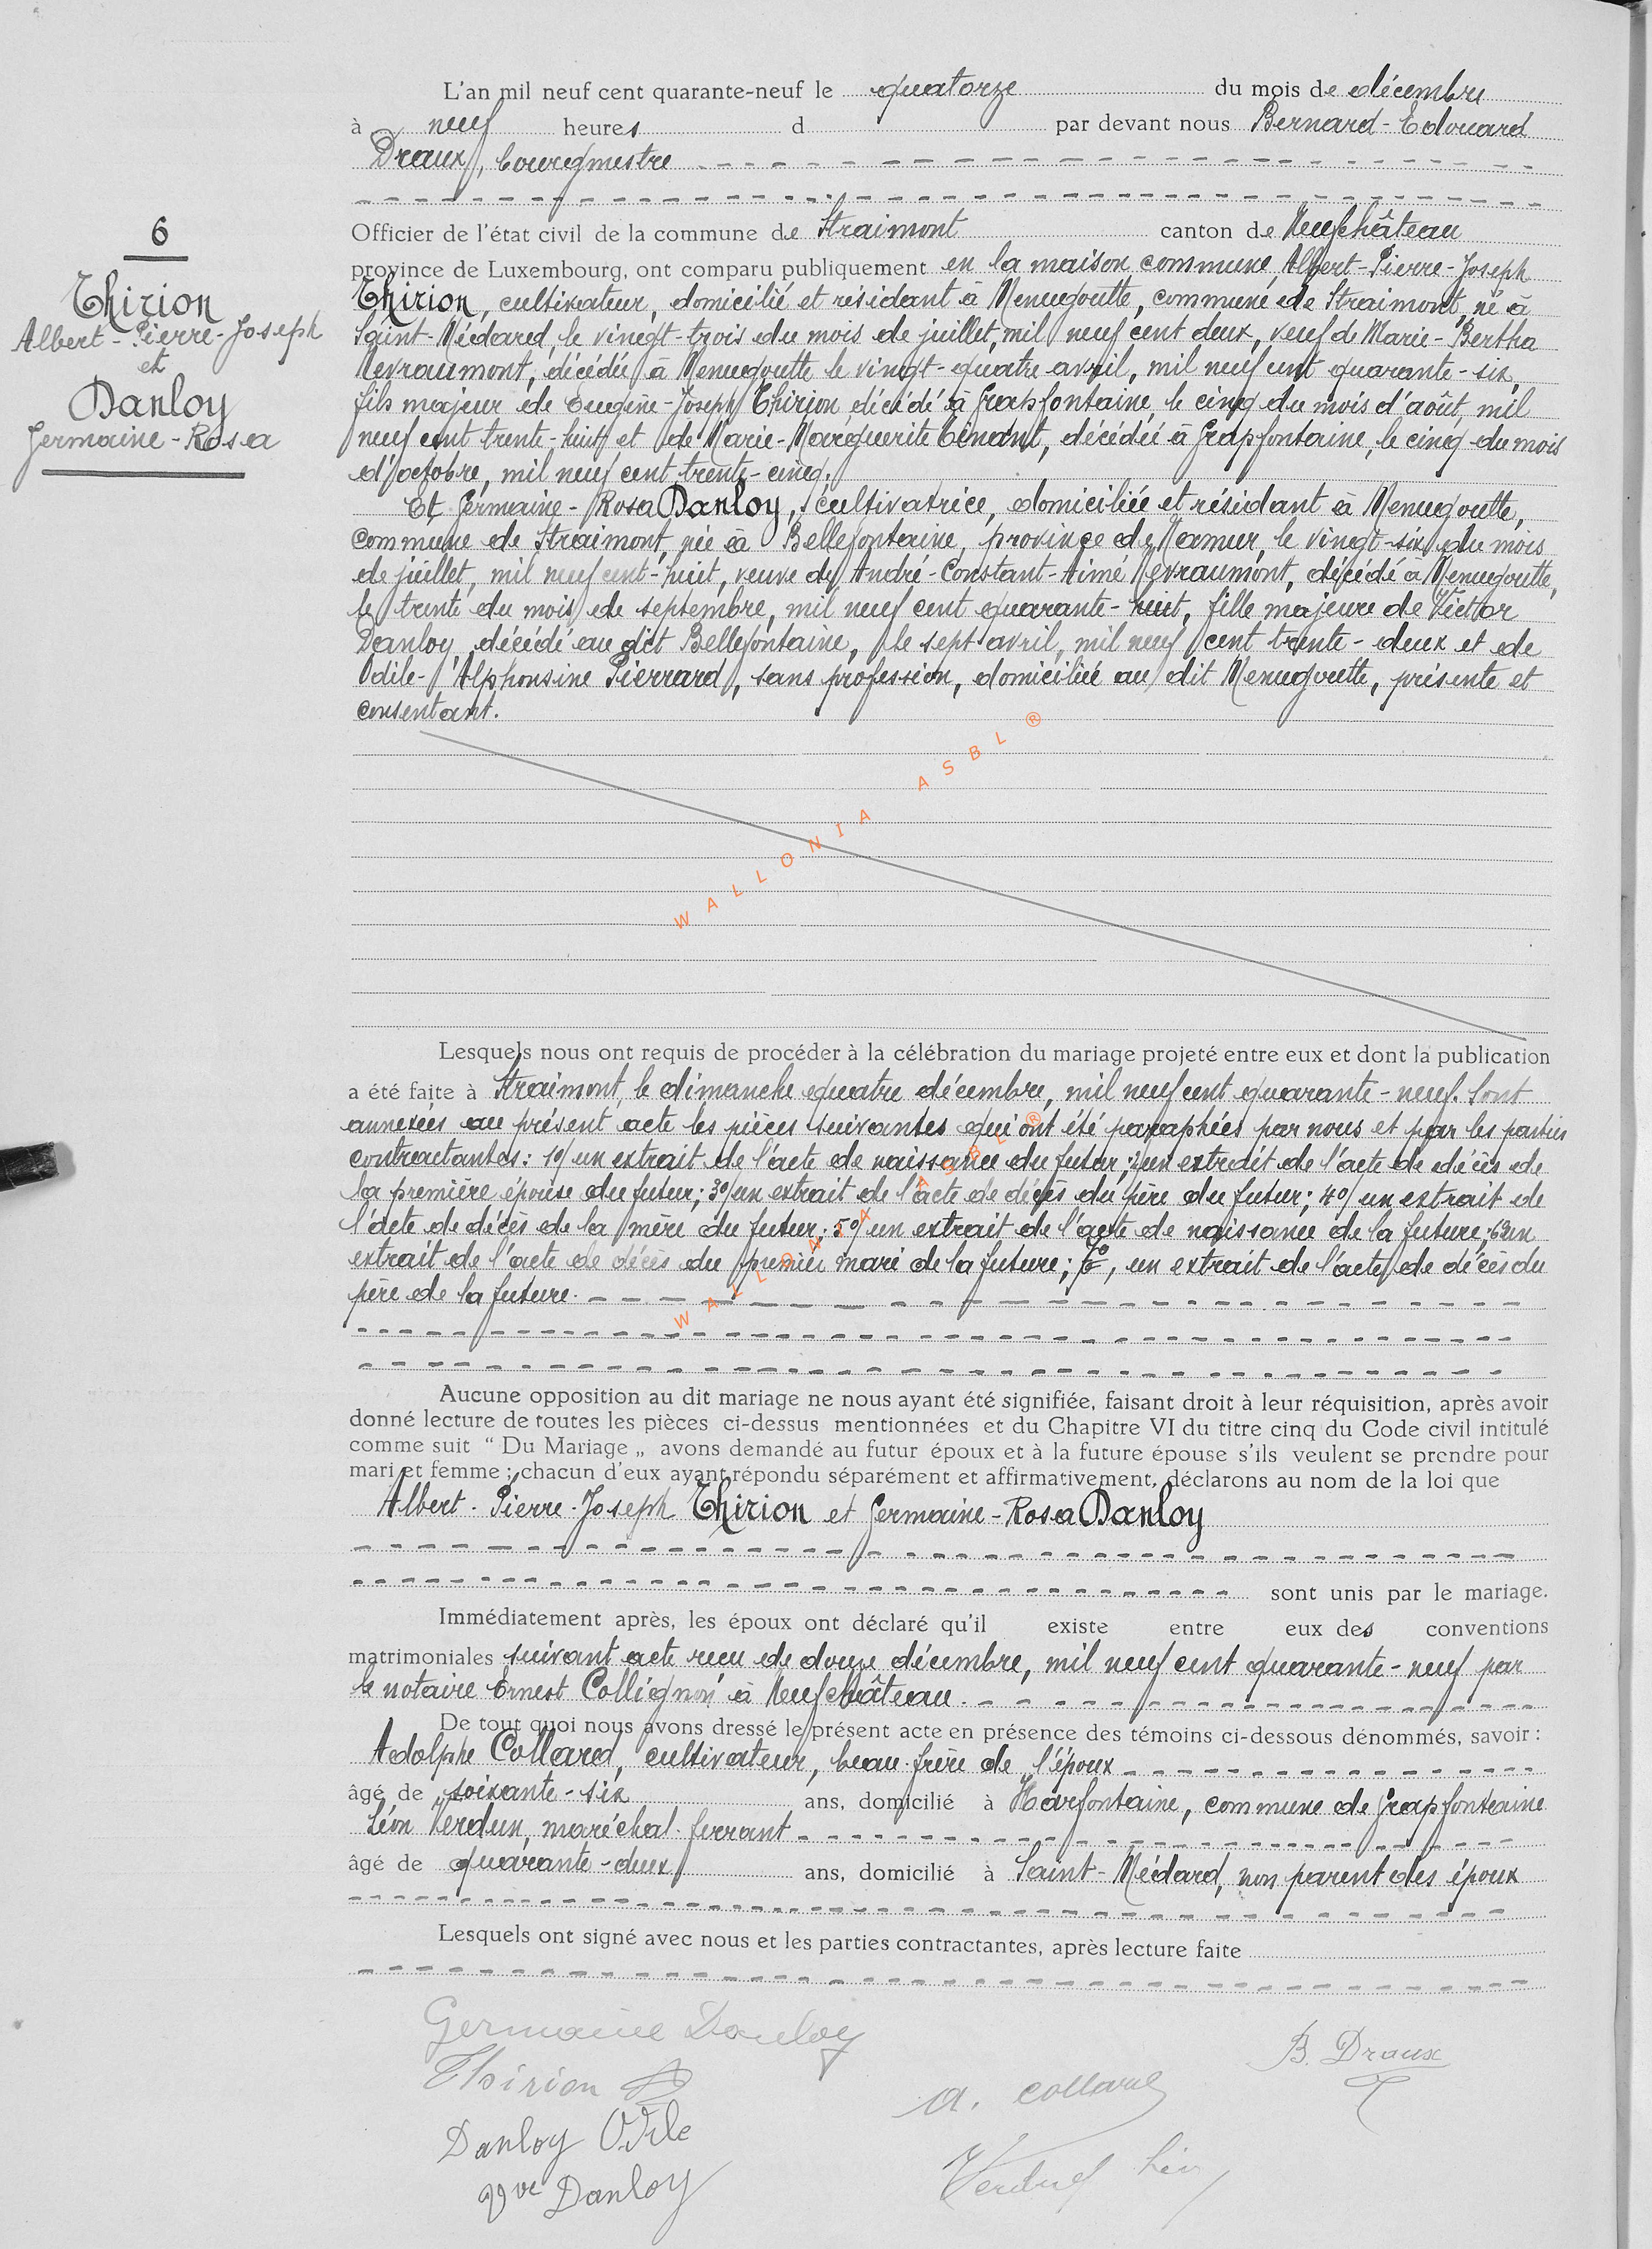 6
Thirion
Albert-Pierre-Joseph
et
Danloy
Germaine-Rosa
L'an mil neuf cent quarante-neuf le quatorze du mois de décembre
à neuf heures d par devant nous Bernard-Edouard
Draux, bourgmestre
Officier de l'état civil de la commune de Straimont canton de Neufchâteau
province de Luxembourg, ont comparu publiquement en la maison commune Albert-Pierre-Joseph
Thirion, cultivateur, domicilié et résidant à Menugoutte, commune de Straimont, né à
Saint-Médard, le vingt-trois du mois de juillet, mil neuf cent deux, veuf de Marie-Bertha
Nevraumont, décédée à Menugoutte le vingt-quatre avril, mil neuf cent quarante-six,
fils majeur de Eugène-Joseph Thirion décédé à Grapfontaine, le cinq du mois d'août, mil
neuf cent trente-huit et de Marie-Marguerite Toinant, décédée à Grapfontaine, le cinq du mois
d'octobre, mil neuf cent trente-cinq.
Et Germaine-Rosa Danloy, cultivatrice, domiciliée et résidant à Menugoutte,
commune de Straimont, née à Bellefontaine, province de Namur, le vingt-six du mois
de juillet, mil neuf cent-huit, veuve de André-Constant-Aimé Nevraumont, décédé à Menugoutte,
le trente du mois de septembre, mil neuf cent quarante-huit, fille majeure de Victor
Danloy, décédé au dit Bellefontaine, le sept avril, mil neuf cent trente-deux et de
Odile-Alphonsine Pierrard, sans profession, domiciliée au dit Menugoutte, présente et
consentant.
WALLONIA ASBL ®
Lesquels nous ont requis de procéder à la célébration du mariage projeté entre eux et dont la publication
a été faite à Straimont, le dimanche quatre décembre, mil neuf cent quarante-neuf. Sont
annexées au présent acte les pièces suivantes qui ont été paraphées par nous et par les parties
contractantes: 1°/ un extrait de l'acte de naissance du futur; 2° un extrait de l'acte de décès de
la première épouse du futur; 3°/ un extrait de l'acte de décès du père du futur; 4°/ un extrait de
l'acte de décès de la mère du futur; 5°/ un extrait de l'acte de naissance de la future; 6° un
extrait de l'acte de décès du premier mari de la future; 7°, un extrait de l'acte de décès du
père de la future.
WALLONIA ASBL ®
Aucune opposition au dit mariage ne nous ayant été signifiée, faisant droit à leur réquisition, après avoir
donné lecture de toutes les pièces ci-dessus mentionnées et du Chapitre VI du titre cinq du Code civil intitulé
comme suit “ Du Mariage „ avons demandé au futur époux et à la future épouse s'ils veulent se prendre pour
mari et femme ; chacun d'eux ayant répondu séparément et affirmativement, déclarons au nom de la loi que
Albert-Pierre-Joseph Thirion et Germaine-Rosa Danloy
sont unis par le mariage.
Immédiatement après, les époux ont déclaré qu'il existe entre eux des conventions
matrimoniales suivant acte reçu de douze décembre, mil neuf cent quarante-neuf par
le notaire Ernest Collignon à Neufchâteau.
De tout quoi nous avons dressé le présent acte en présence des témoins ci-dessous dénommés, savoir :
Adolphe Collard, cultivateur, beau-frère de l'époux
âgé de soixante-six ans, domicilié à Harfontaine, commune de Grapfontaine
Léon Verdun, maréchal-ferrant
âgé de quarante-deux ans, domicilié à Saint-Médard, non parent des époux
Lesquels ont signé avec nous et les parties contractantes, après lecture faite
Germaine Danloy
Thirion A
Danloy Odile
Vve Danloy
A. Collard
Verdun Léon
B. Draux